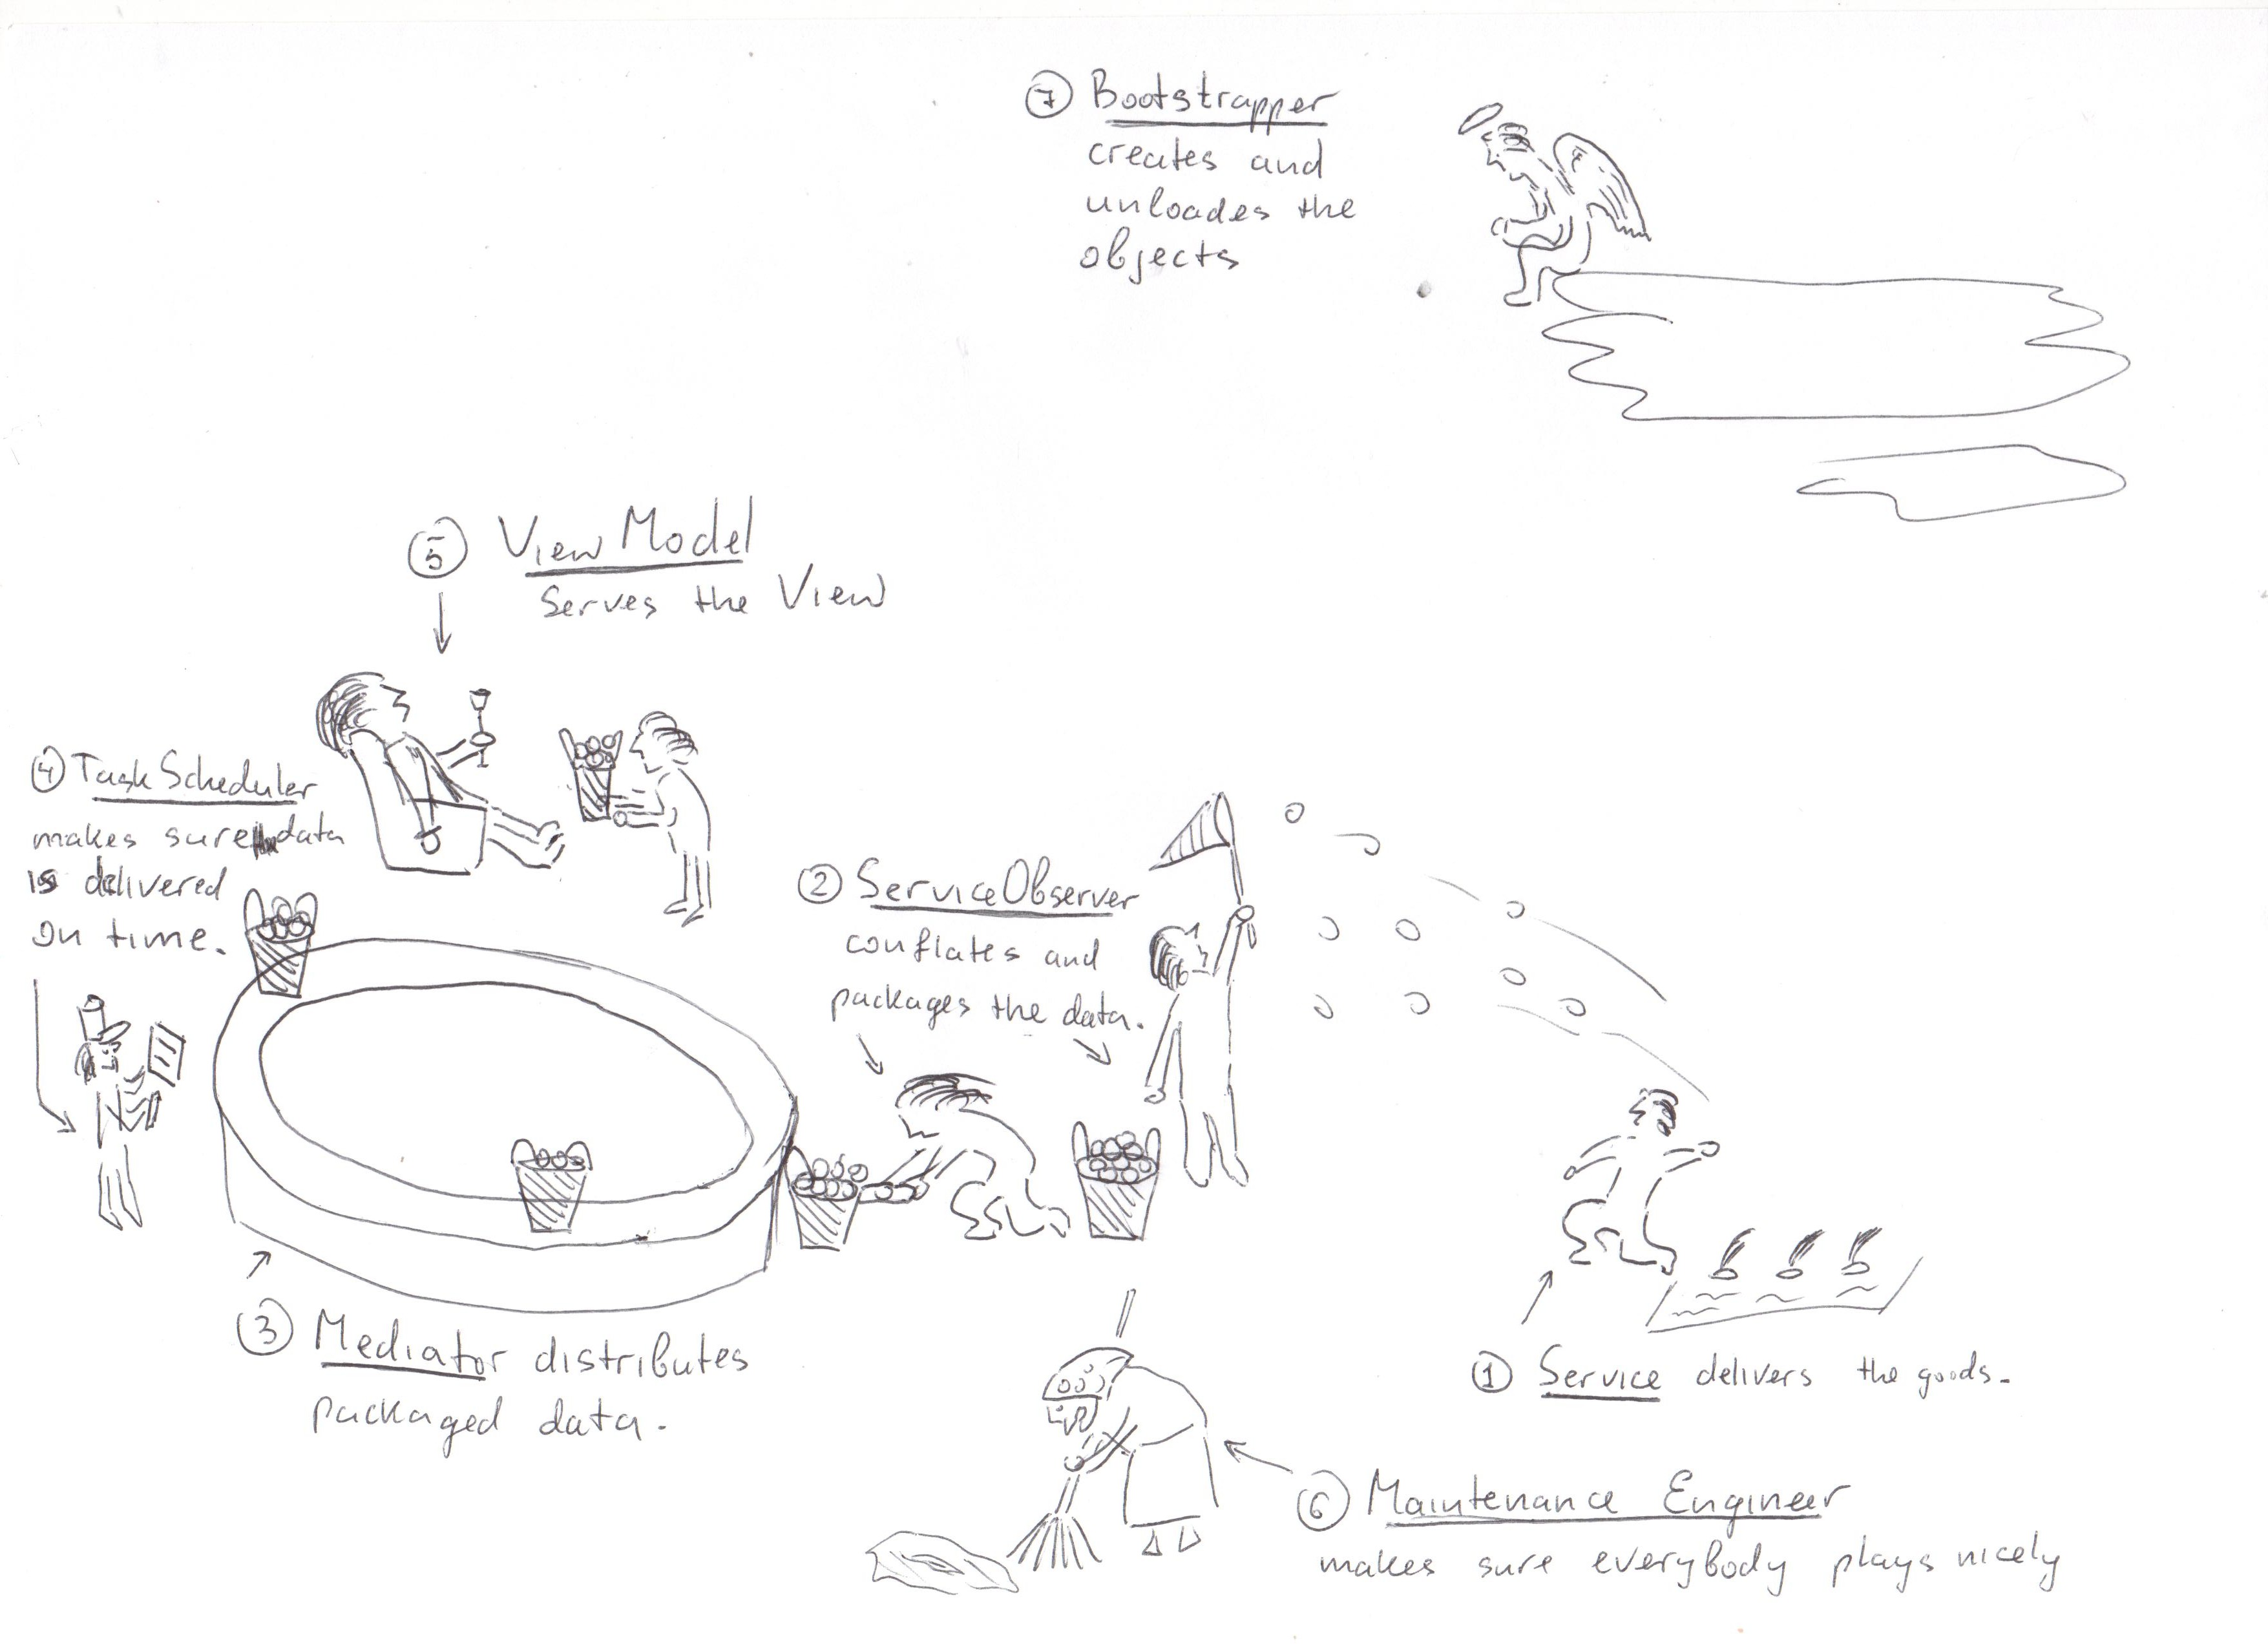 7 Bootstrapper
creates and
unloades the
objects
5 ViewModel
Serves the View
4 TaskScheduler
makes sure the data
is delivered
on time.
2 ServiceObserver
conflates and
packages the data.
3 Mediator distributes
packaged data.
1 Service delivers the goods.
6 Maintenance Engineer
makes sure everybody plays nicely